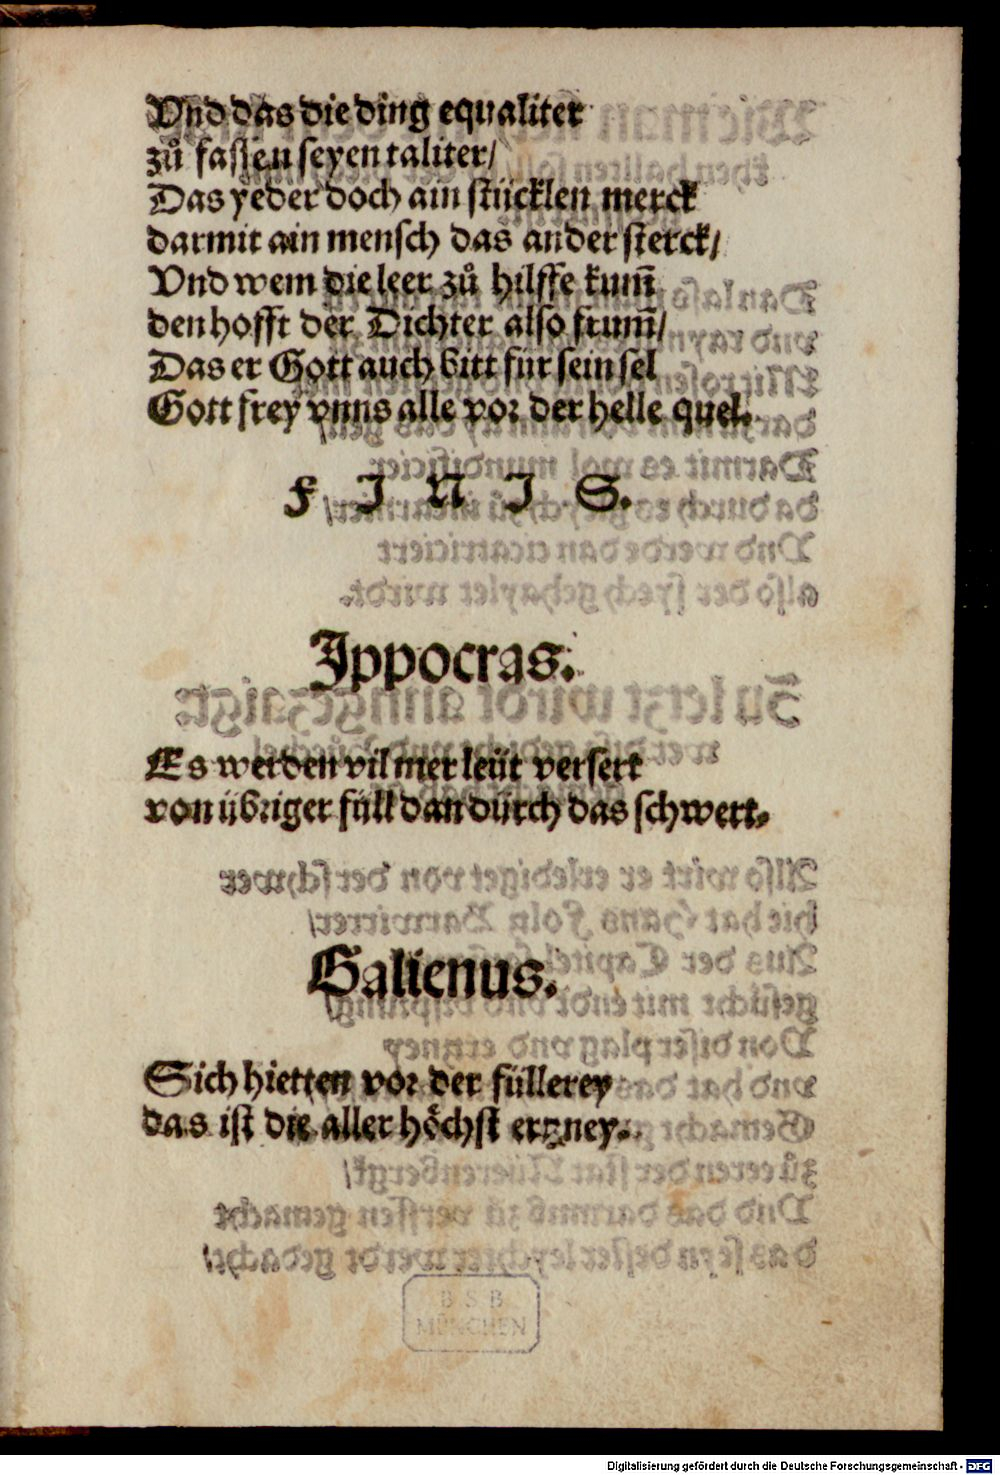 Vnd das die ding equaliter
zů fassen seyen taliter/
Das yeder doch ain stücklen merck
darmit ain mensch das ander sterck/
Vnd wem die leer zů hilffe kum̄
den hofft der Dichter also frum̄/
Das er Gott auch bitt für sein sel
Gott frey vnns alle vor der helle quel.
F I N I S.
Ippocras.
Es werden vil mer leüt versert
von übriger füll dan durch das schwert.
Galienus.
Sich hietten vor der füllerey
das ist die aller höchst ertzney.
B S B
MÜNCHEN
Digitalisierung gefördert durch die Deutsche Forschungsgemeinschaft - DFG